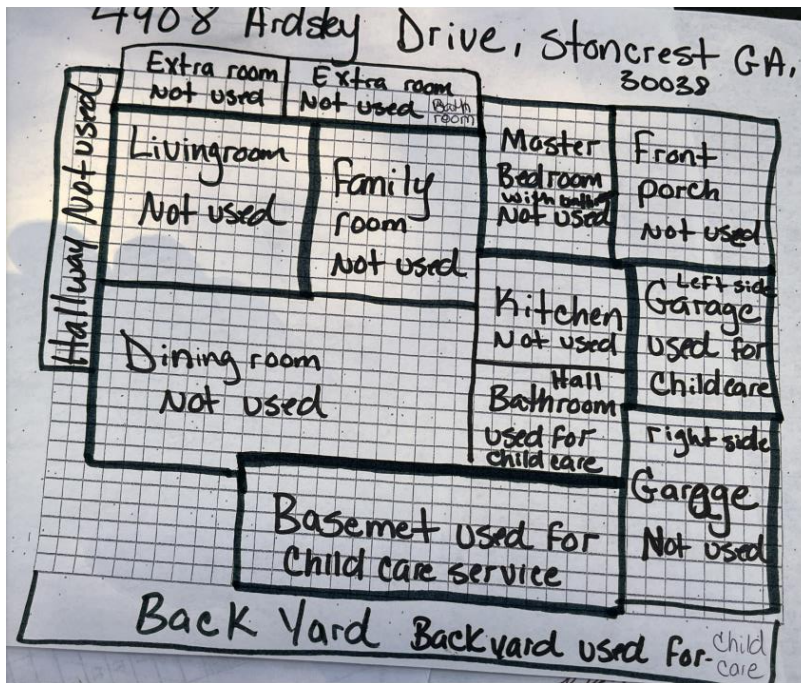 4908 Ardsley Drive, Stoncrest GA,
30038
Extra room
Not used
Extra room
Not used
Bath
room
Hallway Not used
Livingroom
Not used
Family
room
Not used
Master
Bedroom
with bath
Not used
Front
porch
Not used
Kitchen
Not used
Left side
Garage
used for
Childcare
Dining room
Not used
Hall
Bathroom
used for
child care
right side
Gargge
Not used
Basemet used for
Child care service
Back Yard Backyard used for-child
care